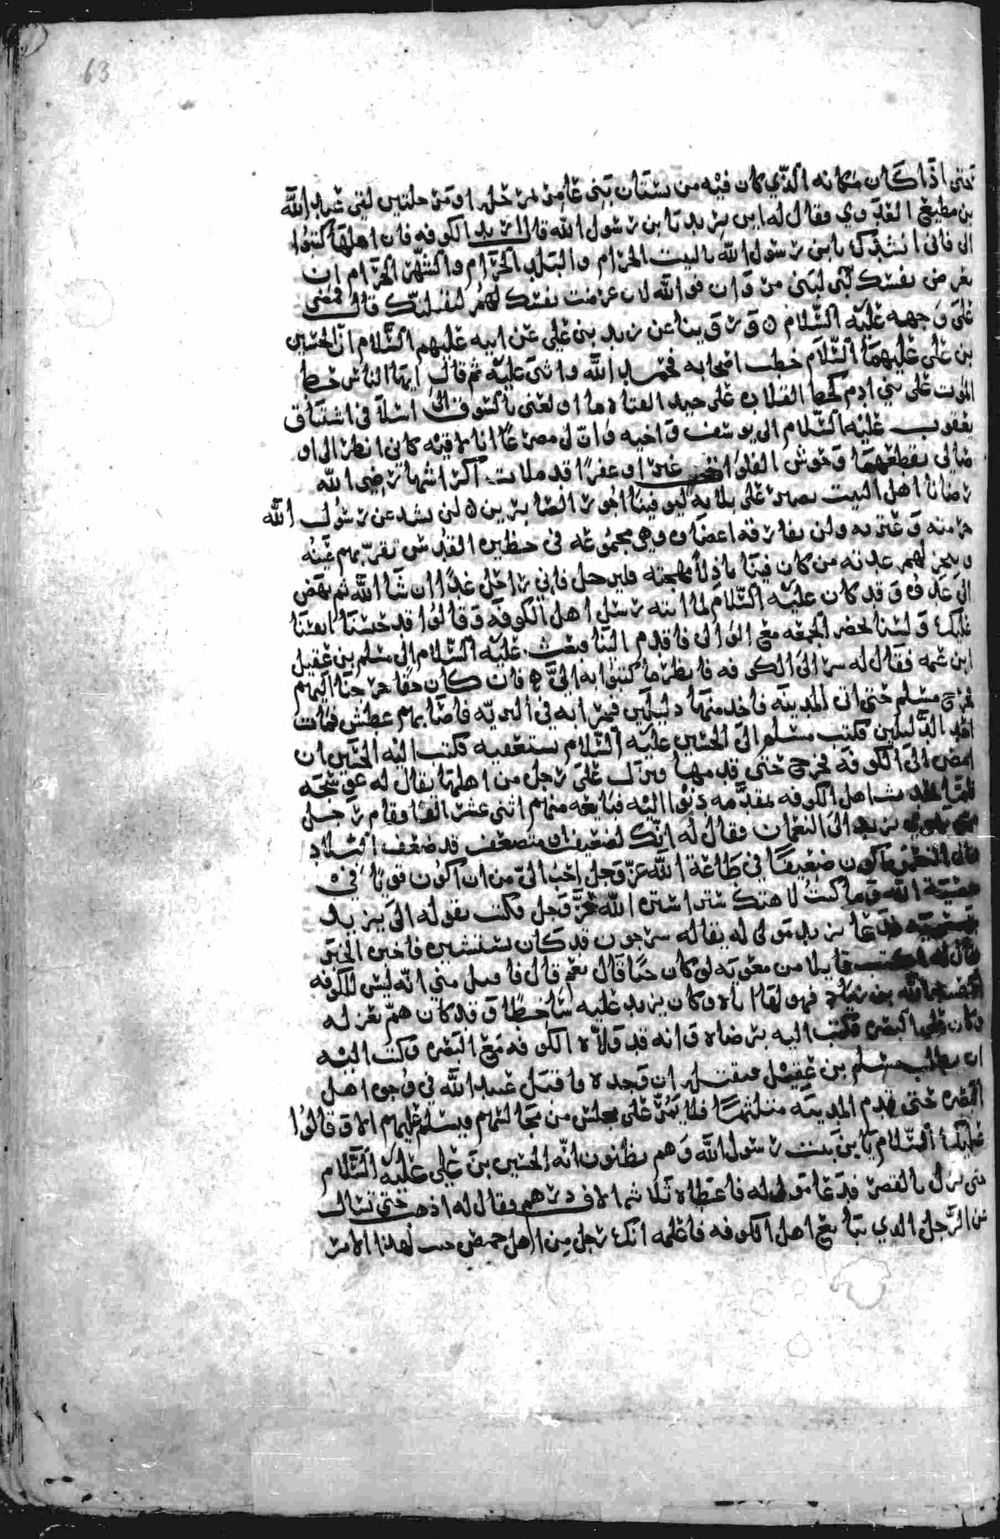 63
حتى اذا كان مكانه الذي كان فيه من بستان بني عامر لمن خلى او من حلتين لقي عبد الله
بن مطيع العدوي وقال له اين تريد يا بن رسول الله قال اريد الكوفه فان اهلها كتبوا
الي فاني انشدك يا بن رسول الله بالبيت الحرام والبلد الحرام والشهر الحرام ان
تعرض نفسك لبني مروان فو الله لان عرضت نفسك لهم لتقتلنك قال فمضى
على وجهه عليه السلام ه وروينا عن زيد بن علي عن ابيه عليهم السلام ان الحسين
بن علي عليهما السلام خطب اصحابه فحمد الله واثنى عليه ثم قال ايها الناس خط
الموت على بني ادم كخط القلاده على جيد الفتاه ما اولعني بالشوق الى اسلافي اشتياق
يعقوب عليه السلام الى يوسف واخيه وان لي مصرعا انا لاقيه كاني انظر الى او
صالي تقطعها وحوش الفلوات غبرا وعفرا قد ملات اكراشها رضي الله
رضانا اهل البيت نصبر على بلائه ليوفينا اجور الصابرين ه لن يشد عن رسول الله
حرمته وعترته ولن تفارقه اعضاوه وهي مجموعه في حظيره القدس تقر بهم عينه
وينجز لهم عدته من كان فينا باذلا مهجته فليرحل فاني راحل غدا ان شا الله ثم نهض
الى عدوه وقد كان عليه السلام لما اتته رسل اهل الكوفه وقالوا قد حبسنا انفسنا
عليك ولسنا نحضر الجمعه مع الوالي فاقدم الينا فبعث عليه السلام الى مسلم بن عقيل
ابن عمه فقال له سر الى الكوفه فانظر ما كتبوا به الي ه فان كان حقا خرجنا اليهم
فخرج مسلم حتى اتى المدينه فاخذ منها دليلين فمرا به في البريه فاصابهم عطش فمات
احد الدليلين فكتب مسلم الى الحسين عليه السلام يستعفيه فكتب اليه الحسين ان
امض الى الكوفه فخرج حتى قدمها ونزل على رجل من اهلها يقال له عوسجه
فلما تحدث اهل الكوفه بمقدمه دنوا اليه فبايعه منهم اثنى عشر الفا وقام رجل
ممن يهوى يزيد الى النعمان فقال له انك لضعيف او متضعف قد ضعف البلاد
فقال النعمن اكون ضعيفا في طاعة الله عز وجل احب الي من ان اكون قويا في ه
معصية الله وما كنت لاهتك ستر استره الله عز وجل فكتب بقوله الى يزيد
فدعا يزيد مولى له يقال له سرجون قد كان يستشيره فاخبره الخبر
فقال له اكنت قابلا من معويه لو كان حيا قال نعم قال فاقبل مني انه ليس للكوفه
الا عبيد الله بن زياد فولها اياه وكان يزيد عليه ساخطا وقد كان هم بعزله
وكان على البصره فكتب اليه برضاه وانه قد ولاه الكوفه مع البصره وكتب اليه
ان يطلب مسلم بن عقيل فيقتله ان وجده فاقبل عبيد الله في وجوه اهل
البصره حتى قدم المدينه متلثما فلا يمر على مجلس من مجالسهم فيسلم عليهم الا وقالوا
عليك السلام يا بن بنت رسول الله وهم يظنون انه الحسين بن علي عليه السلام
حتى نزل بالقصر فدعا مولى له فاعطاه ثلاثه الاف درهم وقال له اذهب حتى تسال
عن الرجل الذي تبايع اهل الكوفه فاعلمه انك رجل من اهل حمص جيت لهذا الامر